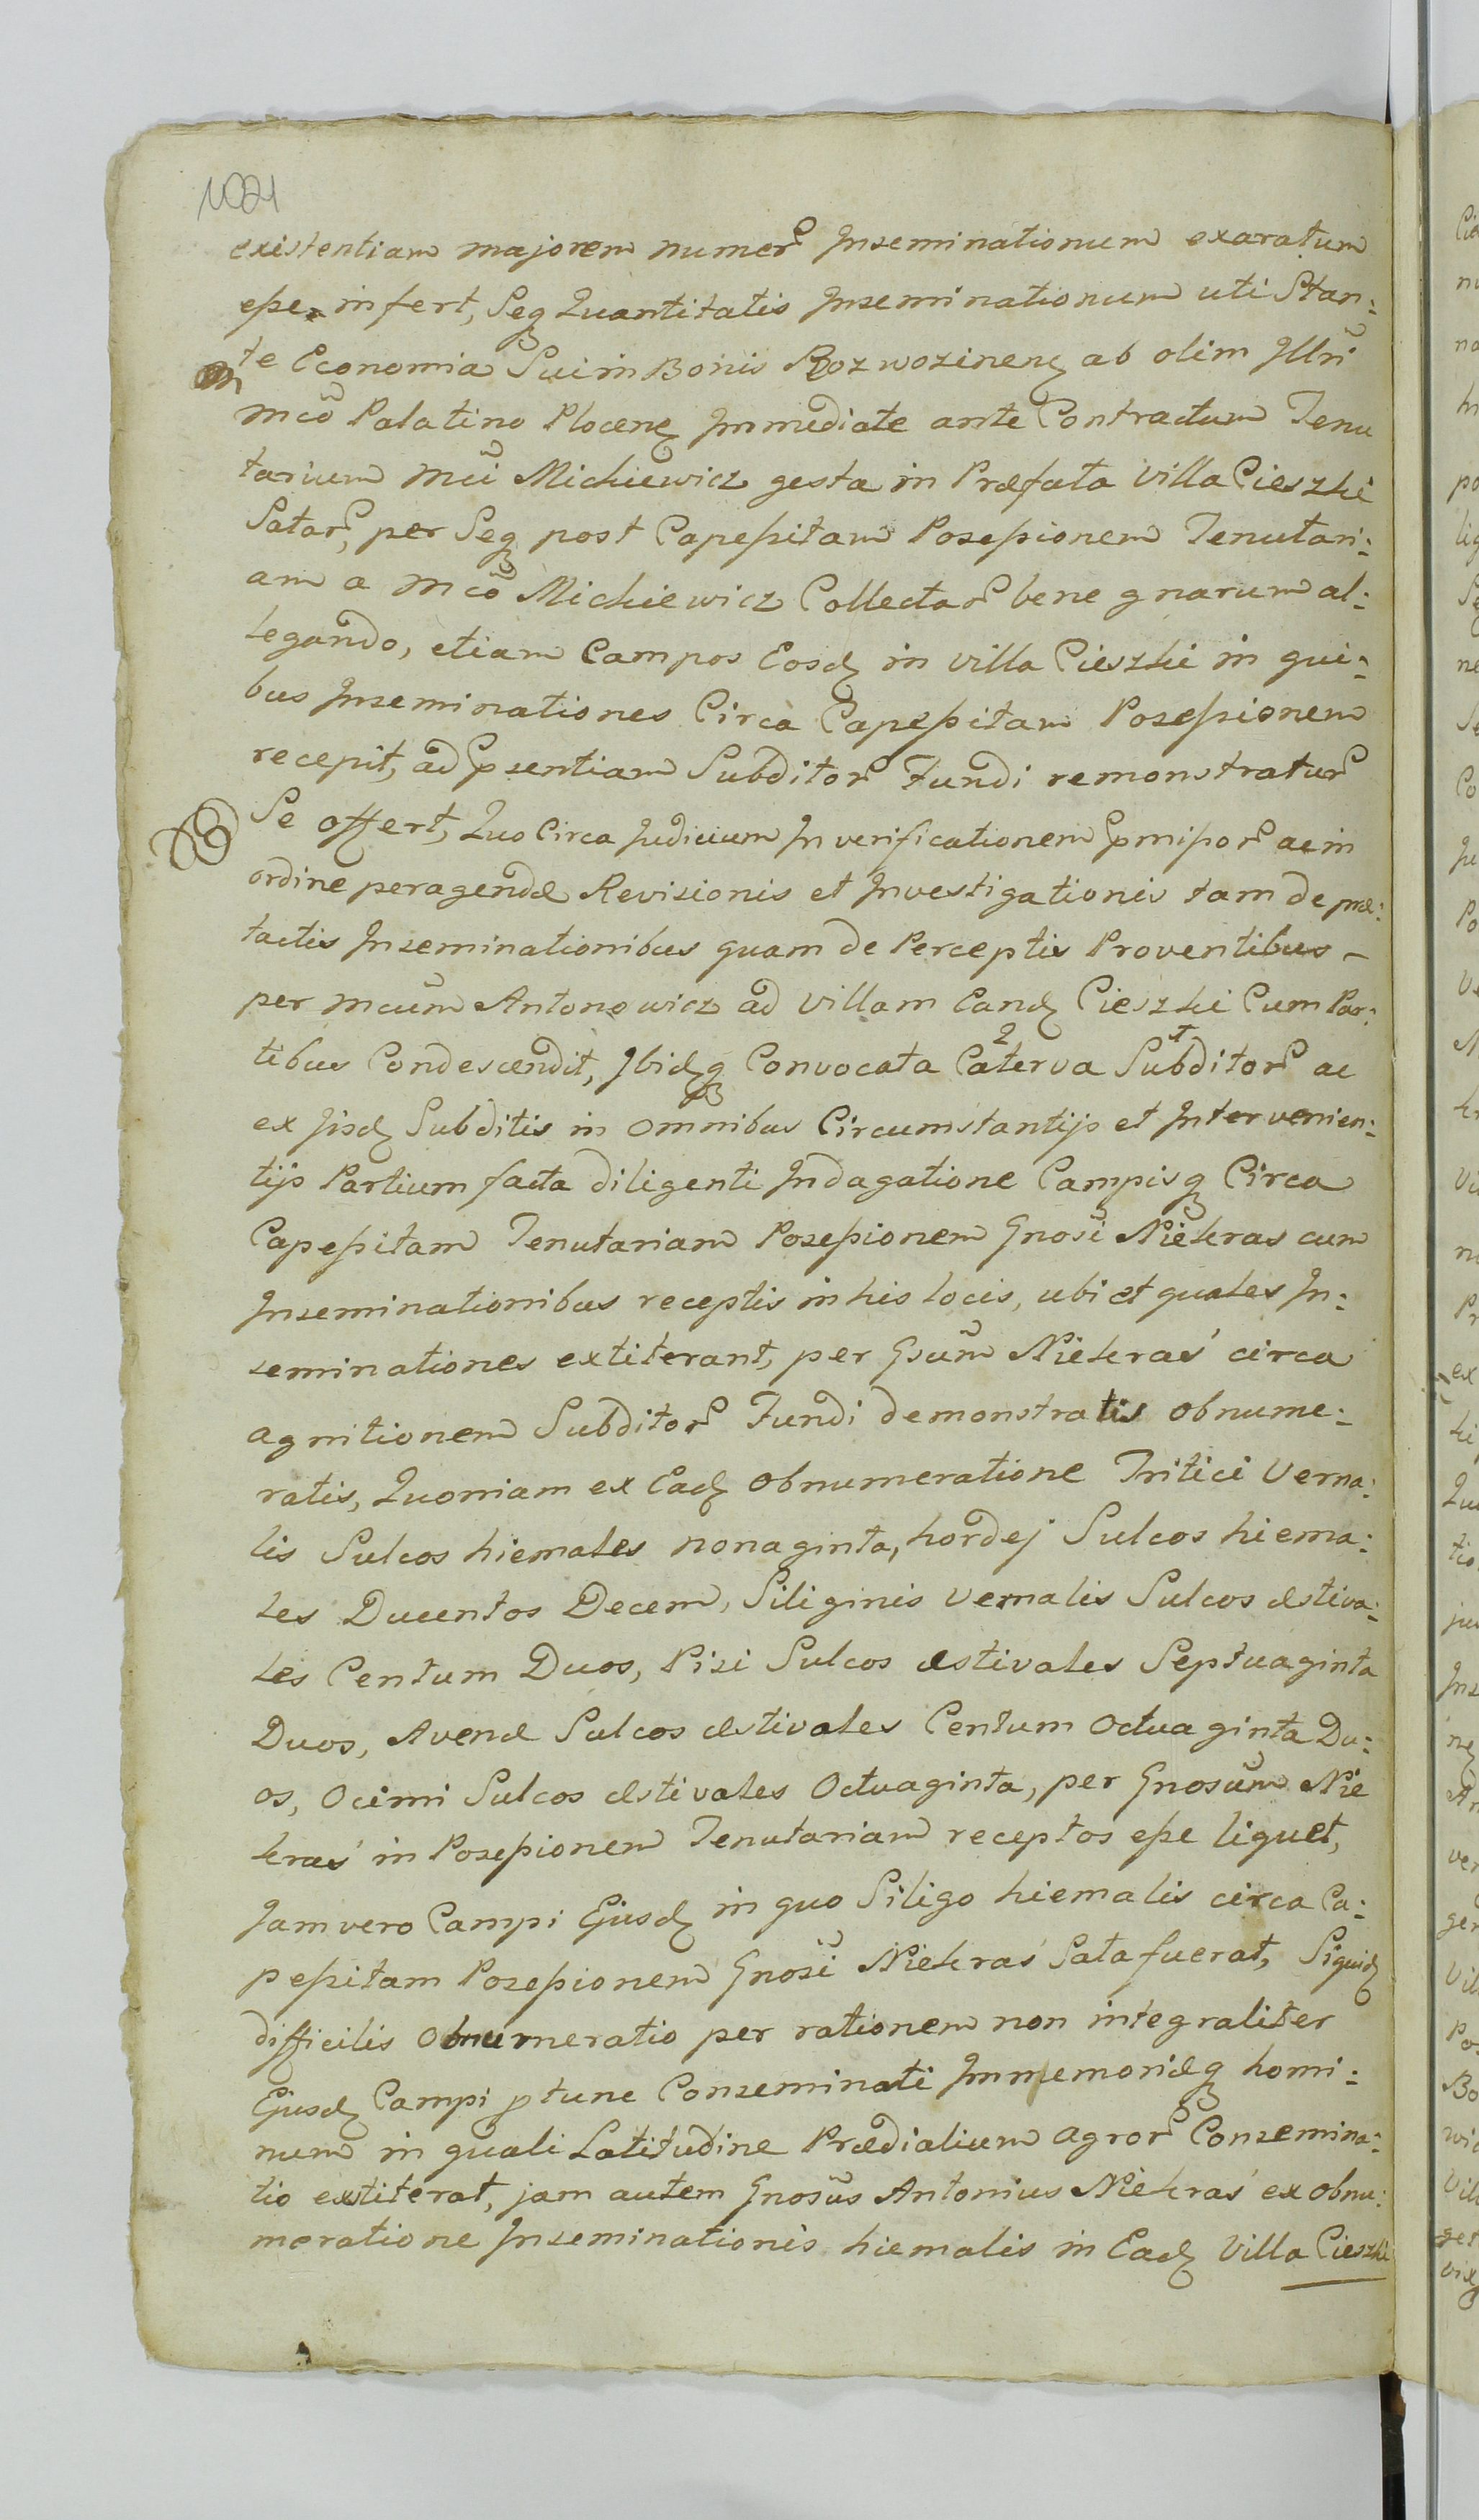 1021
existentiam majorem numer Inseminationum exaratum
esse infert, Seq Quantitatis Inseminationum uti Stan:
te Economia Sui in Bonis Rozwozinen ab olim Illri
Mco Palatino Plocen Immediate ante Contractum Tenu
tarium Mci Mickiewicz gesta in Præfata Villa Cieszki
Sator, per Seq post Capessitam Possessionem Tenutari:
am a Mco Mickiewicz Collector bene gnarum al:
legando, etiam Campos Eosd in Villa Cieszki in qui:
bus Inseminationes Circa Capessitam Possessionem
recepit, ad Psentiam Subditor Fundi remonstratur
Se offert, Quo Circa Judicium In verificationem Pmissor ac in
ordine peragendæ Revisionis et Investigationis tam de præ:
tactis Inseminationibus quam de Perceptis Proventibus –
per Mcum Antonowicz ad Villam Eand Cieszki Cum Par:
tibus Condescendit, Ibidq Convocata Caterva Subditor ac
ex Iisd Subditis in omnibus Circumstantijs et Intervenien:
tijs Partium facta diligenti Indagatione Campisq Circa
Capessitam Tenutariam Possessionem Gnosi Niekras cum
Inseminationibus receptis in his locis, ubi et quales In:
seminationes extiterant, per Gsum Niekraś circa
agnitionem Subditor Fundi demonstratis obnume:
ratis, Quoniam ex Ead obnumeratione Tritici Verna:
lis Sulcos hiemales nonaginta, hordej Sulcos hiema:
les Ducentos Decem, Siliginis Vernalis Sulcos æstiva:
les Centum Duos, Pisi Sulcos æstivales Septuaginta
Duos, Avenæ Sulcos æstivales Centum Octuaginta Du:
os, Ocimi Sulcos æstivales Octuaginta, per Gnosum Nie
kraś in Possessionem Tenutariam receptos esse liquet,
Jam vero Campi Ejusd in quo Siligo hiemalis circa Ca:
pessitam Possessionem Gnosi Niekraś Sata fuerat, Siquid
difficilis Obnumeratio per rationem non integraliter
Ejusd Campi ptunc Conseminati Immemoriæq homi:
num in quali Latitudine Prædialium agror Consemina:
tio extiterat, jam autem Gnosus Antonius Niekraś ex obnu:
meratione Inseminationis hiemalis in Ead Villa Cieszki